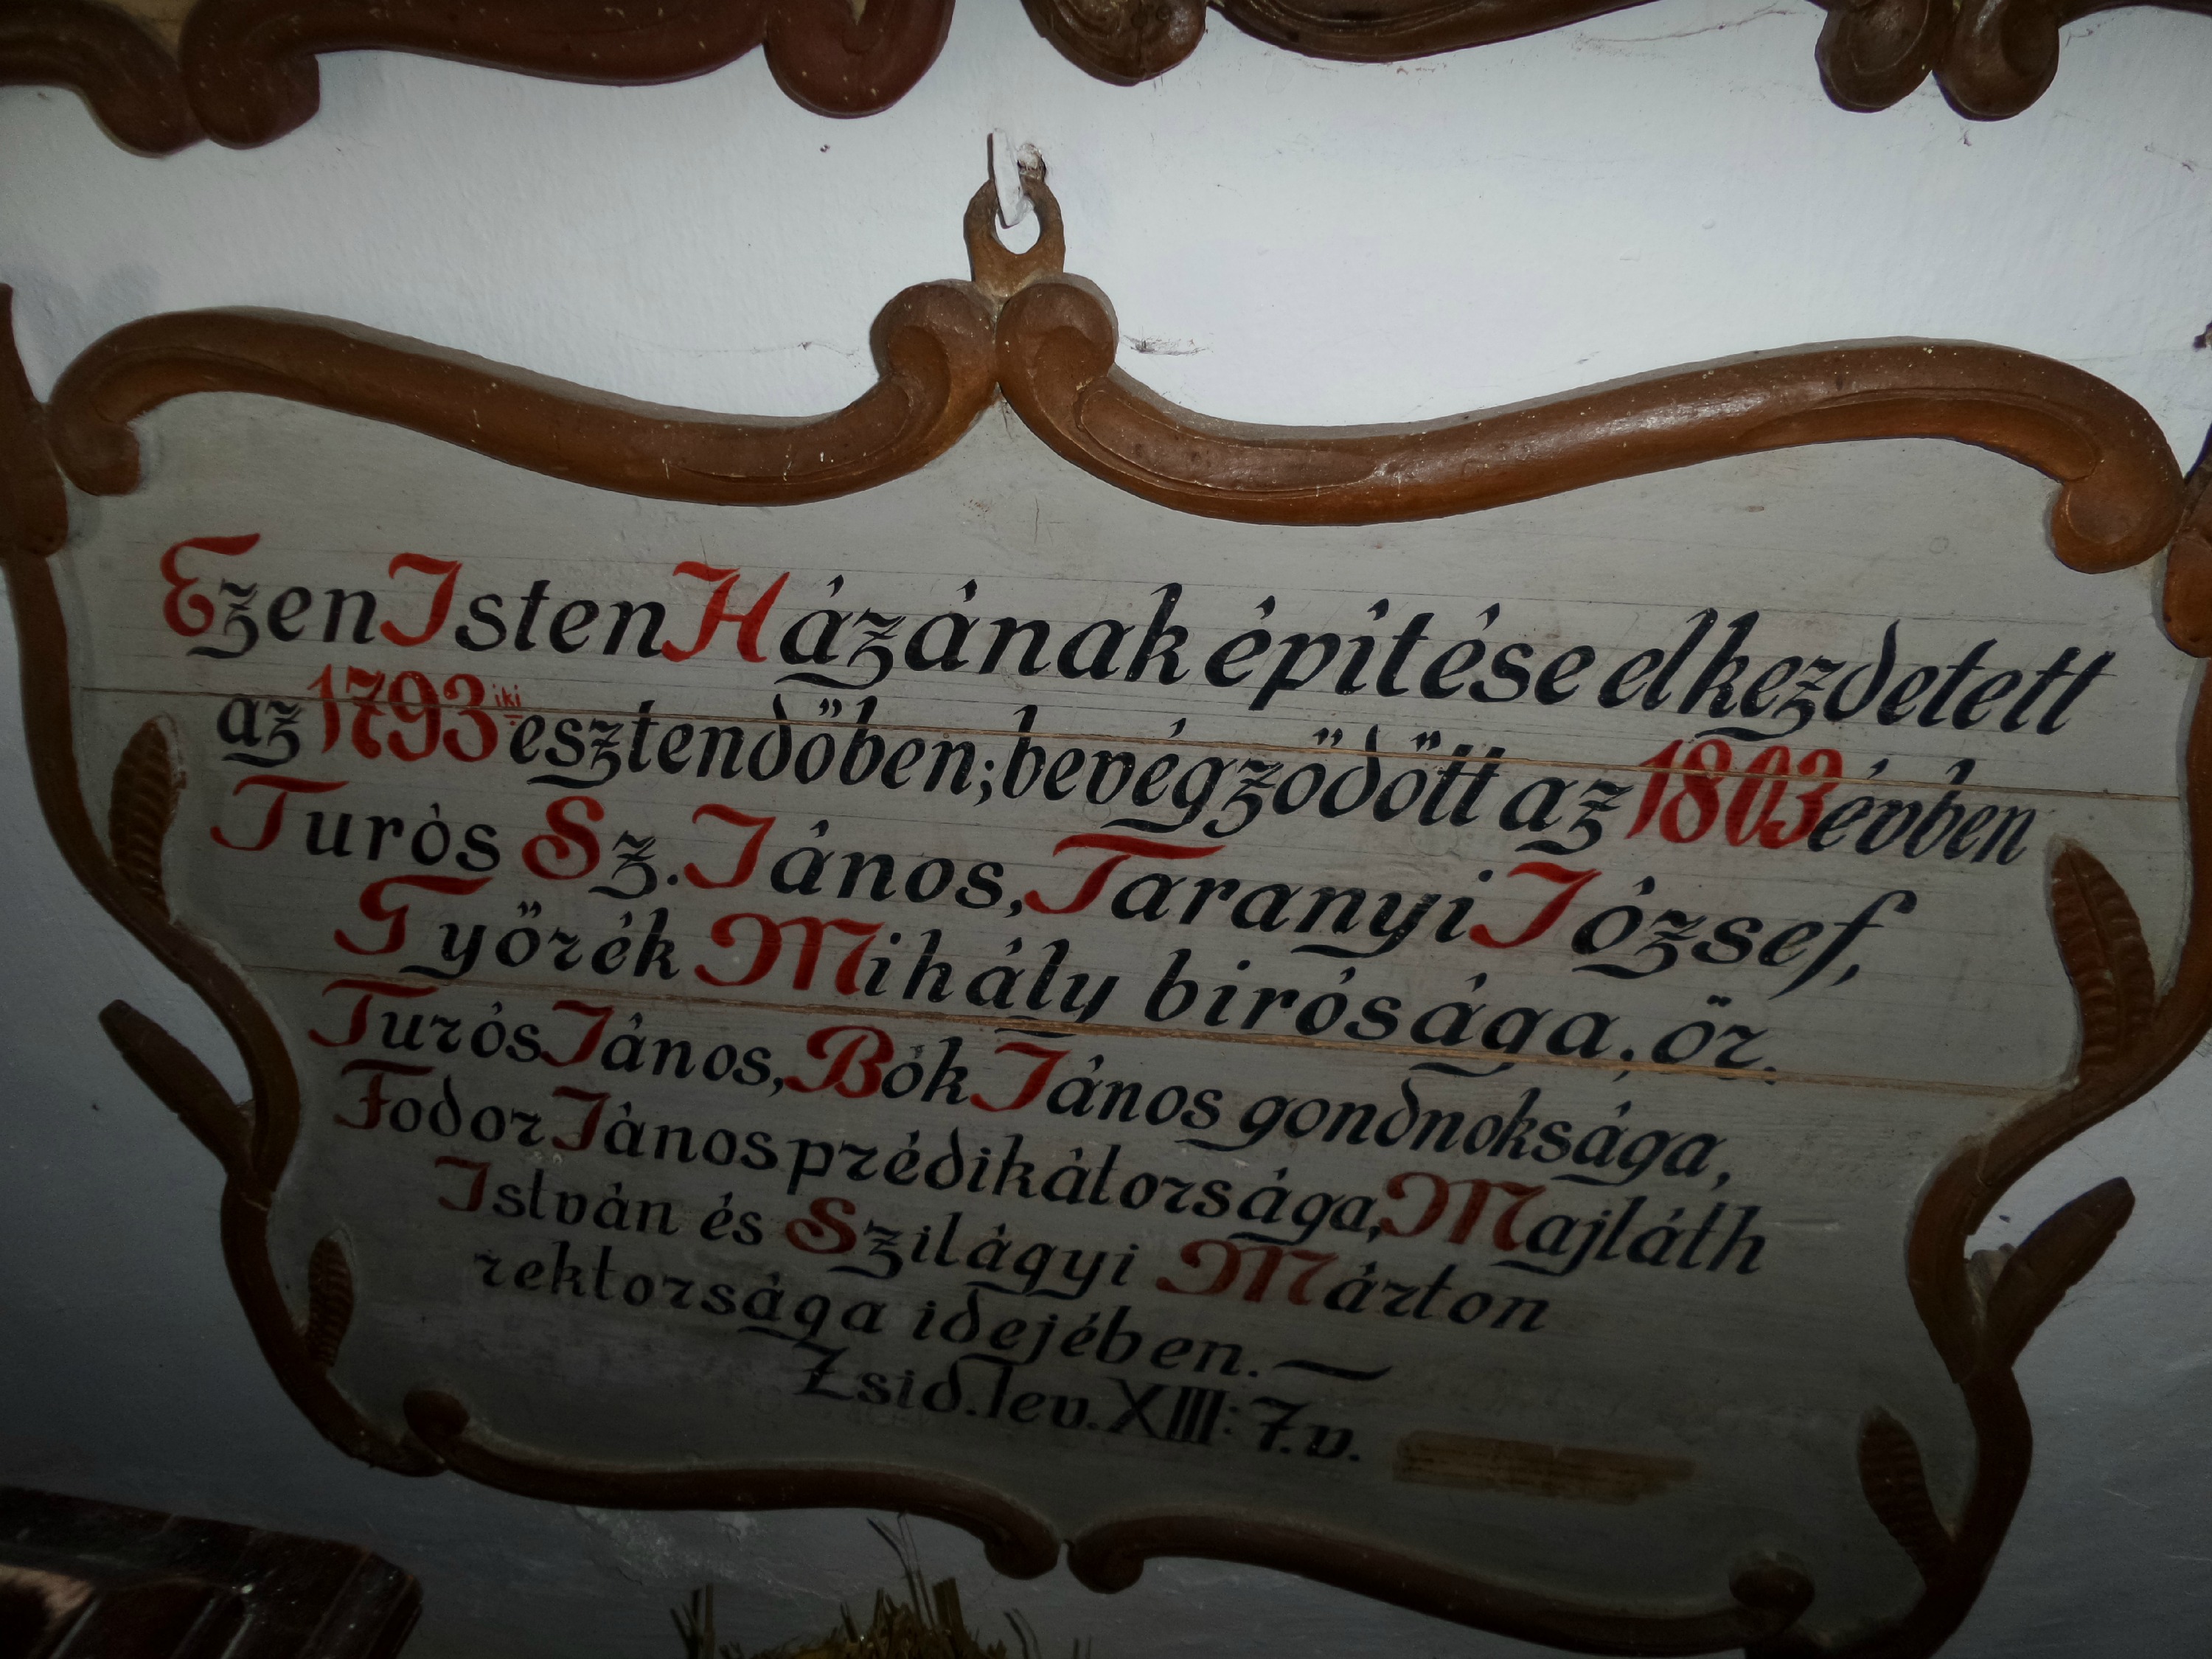 Ezen Isten Házának épitése elkezdetett
az 1793iki esztendőben; bevégződött az 1803 évben
Turós Sz. János, Taranyi József,
Győrék Mihály birósága, őz.
Turós János, Bók János gondnoksága,
Fodor János prédikátorsága, Majláth
István és Szilágyi Márton
rektorsága idejében. —
Zsid. lev. XIII: 7. v.